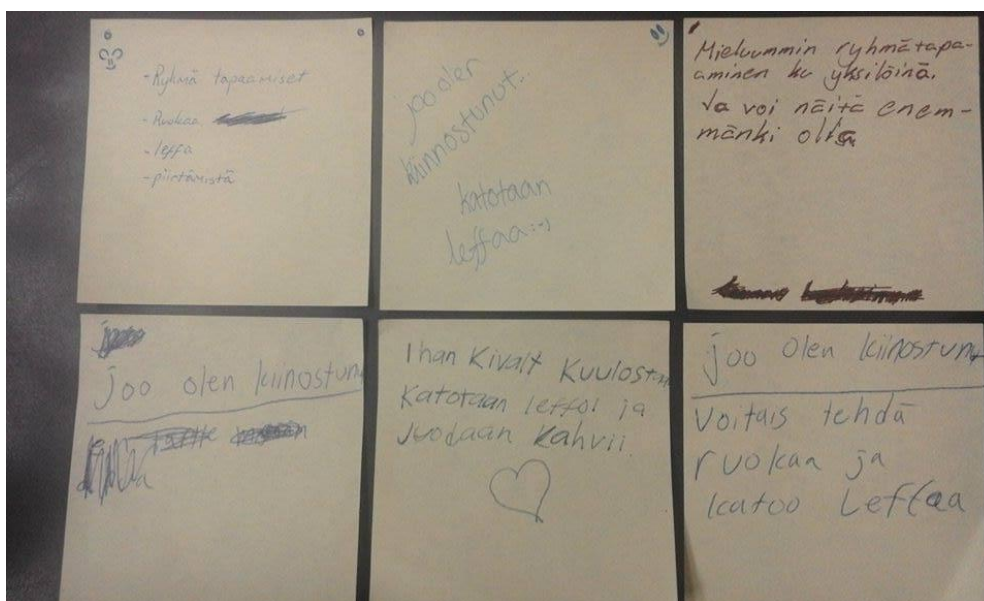 - Ryhmä tapaamiset
- Ruokaa
- leffa
- piirtämistä
joo olen
kiinnostunut...
katotaan
leffaa :-)
Mieluummin ryhmätapa-
aminen ku yksilöinä.
Ja voi näitä enem-
mänki olla
joo olen kiinostunu
Ihan Kivalt Kuulostaa
Katotaan leffoi ja
Juodaan Kahvii
joo olen kiinostunu
Voitais tehdä
ruokaa ja
katoo Leffaa